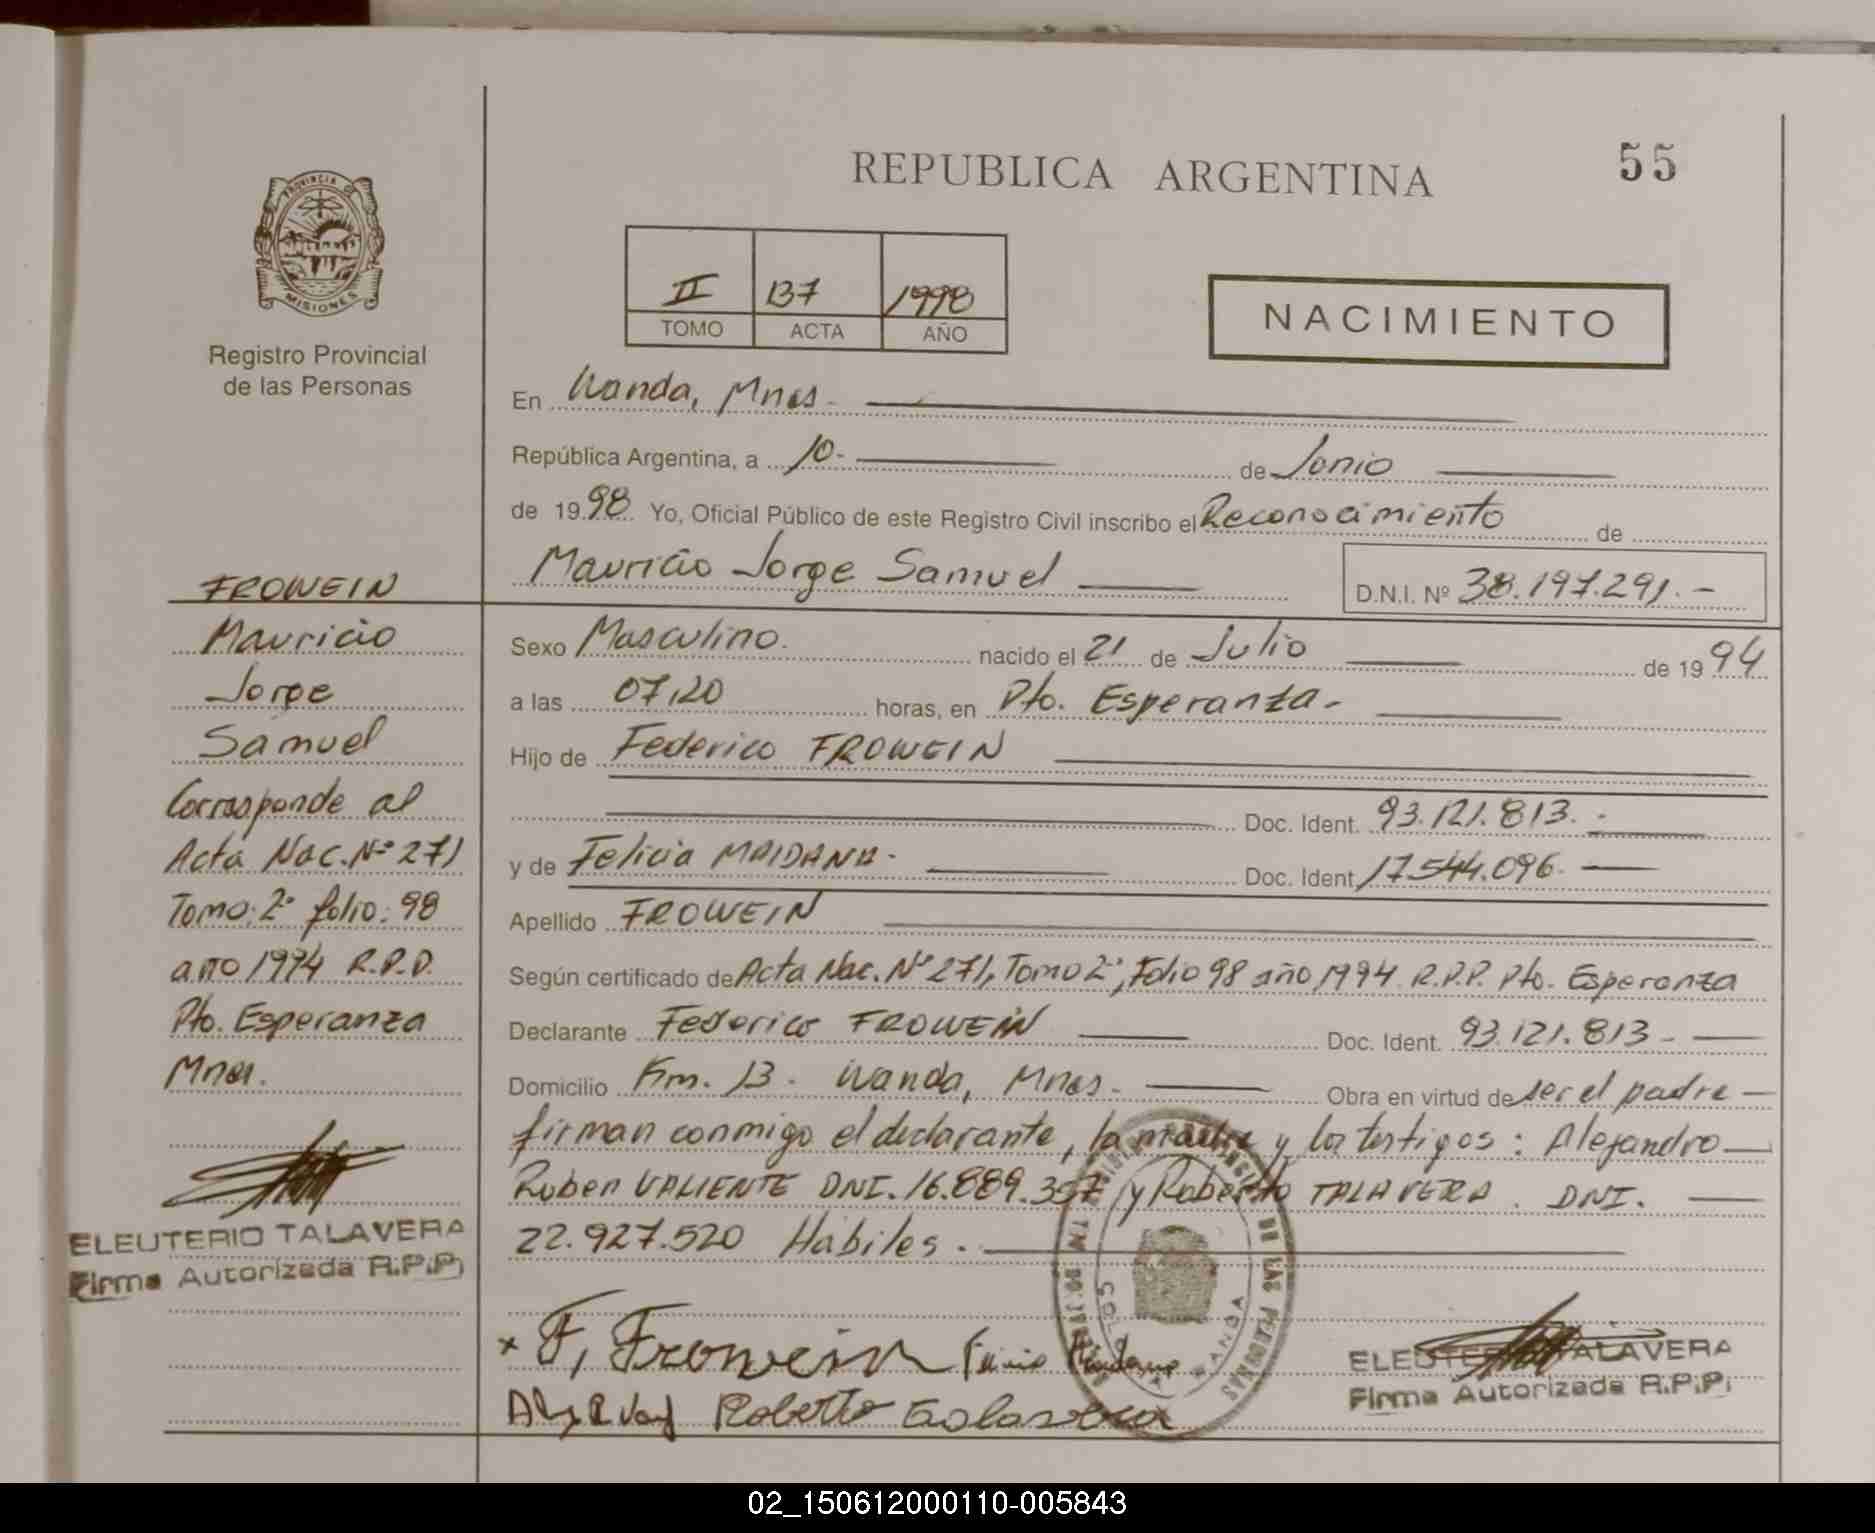 REPUBLICA ARGENTINA
55
PROVINCIA DE
MISIONES
Registro Provincial
de las Personas
II 137 1998
TOMO ACTA AÑO
NACIMIENTO
En Wanda, Mnes.
República Argentina, a 10- de Junio
de 1998 Yo, Oficial Público de este Registro Civil inscribo el Reconocimiento de
Mauricio Jorge Samuel D.N.I. Nº 38.197.291.-
Sexo Masculino. nacido el 21 de Julio de 1994
a las 07,20 horas, en Pto. Esperanza.
Hijo de Federico FROWEIN
Doc. Ident. 93.121.813.-
y de Felicia MAIDANA- Doc. Ident. 17.544.096.
Apellido FROWEIN
Según certificado de Acta Nac. Nº 271, Tomo 2º, Folio 98 año 1994 R.P.P. Pto. Esperanza
Declarante Federico FROWEIN Doc. Ident. 93.121.813-
Domicilio Km. 13. Wanda, Mnes. Obra en virtud de ser el padre
firman conmigo el declarante, la madre y los testigos: Alejandro
Ruben VALIENTE DNI. 16.889.357 y Roberto TALAVERA. DNI.
22.927.520 Hábiles.
FROWEIN
Mauricio
Jorge
Samuel
Corresponde al
Acta Nac. Nº 271
Tomo: 2º folio: 98
año 1994 R.P.P.
Pto. Esperanza
Mnes.
ELEUTERIO TALAVERA
Firma Autorizada R.P.P.
x F, Frowein
Roberto
ELEUTERIO TALAVERA
Firma Autorizada R.P.P.
DE LAS PERSONAS
02_150612000110-005843